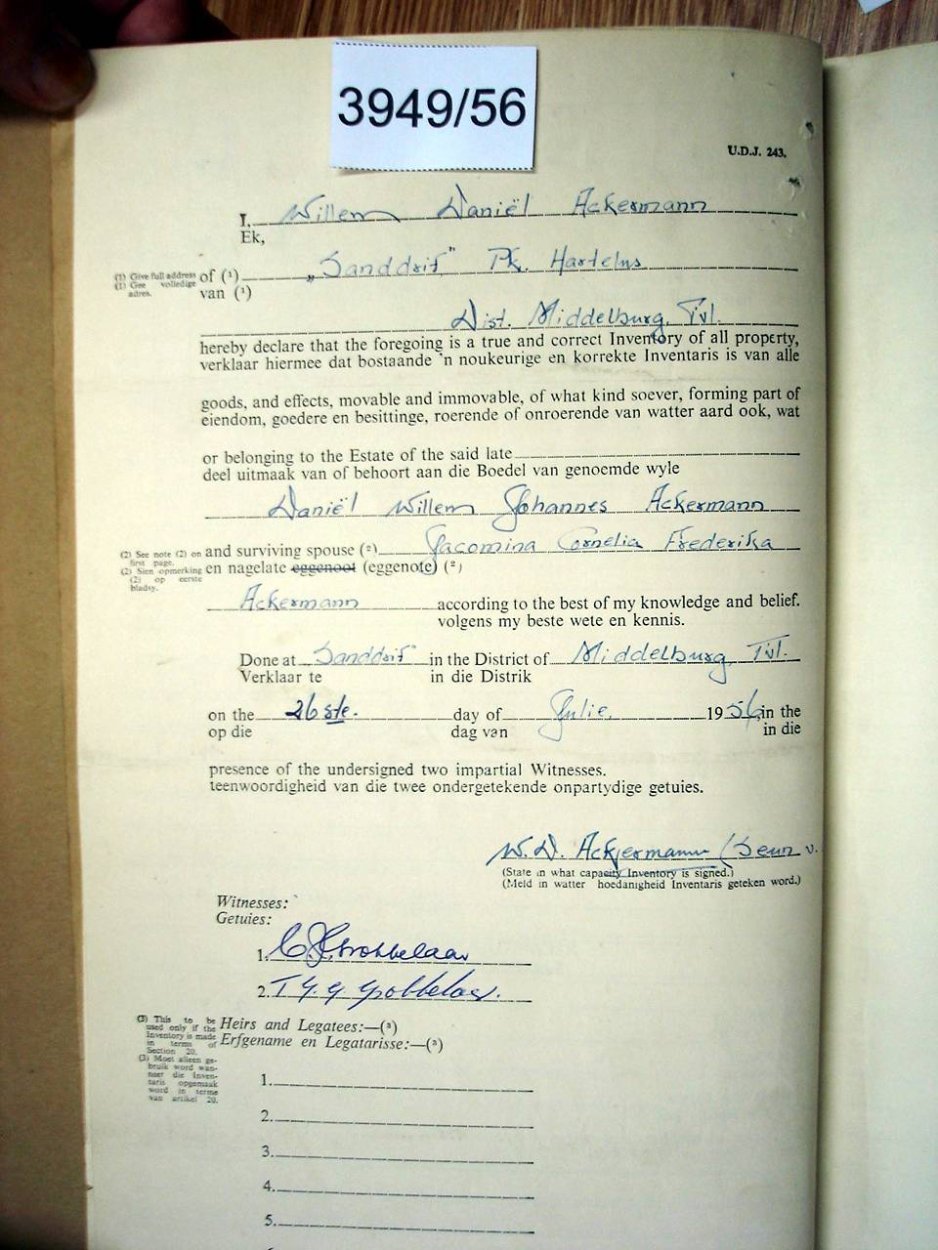 3949/56
U.D.J. 243.
I, Willem Daniël Ackermann
Ek,
(1) Give full address
(1) Gee volledige
adres.
of (¹) „Sanddrif" Pk. Hartelus
van (¹)
Dist. Middelburg, Tvl.
hereby declare that the foregoing is a true and correct Inventory of all property,
verklaar hiermee dat bostaande 'n noukeurige en korrekte Inventaris is van alle
goods, and effects, movable and immovable, of what kind soever, forming part of
eiendom, goedere en besittinge, roerende of onroerende van watter aard ook, wat
or belonging to the Estate of the said late
deel uitmaak van of behoort aan die Boedel van genoemde wyle
Daniël Willem Johannes Ackermann
(2) See note (2) on
first page.
(2) Sien opmerking
(2) op eerste
bladsy.
and surviving spouse (²) Jacomina Cornelia Frederika
en nagelate eggenoot (eggenote) (²)
Ackermann according to the best of my knowledge and belief.
volgens my beste wete en kennis.
Done at Sanddrif in the District of Middelburg, Tvl.
Verklaar te in die Distrik
on the 26ste. day of Julie, 1956, in the
op die dag van in die
presence of the undersigned two impartial Witnesses.
teenwoordigheid van die twee ondergetekende onpartydige getuies.
W. D. Ackermann (Seun v.
(State in what capacity Inventory is signed.)
(Meld in watter hoedanigheid Inventaris geteken word.)
Witnesses:
Getuies:
1. Grobbelaar
2. Grobbelaar.
(3) This to be
used only if the
Inventory is made
in terms of
Section 20.
(3) Moet alleen ge-
bruik word wan-
neer die Inven-
taris opgemaak
word in terme
van artikel 20.
Heirs and Legatees:—(³)
Erfgename en Legatarisse:—(³)
1.
2.
3.
4.
5.